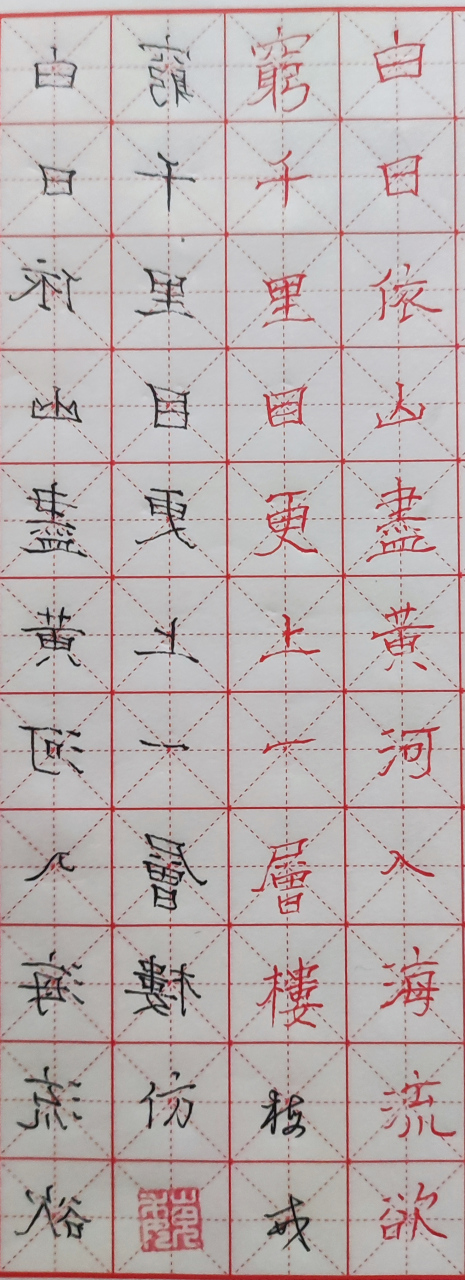 白日依山盡黃河入海流欲
窮千里目更上一層樓
窮千里目更上一層樓仿
白日依山盡黃河入海流欲